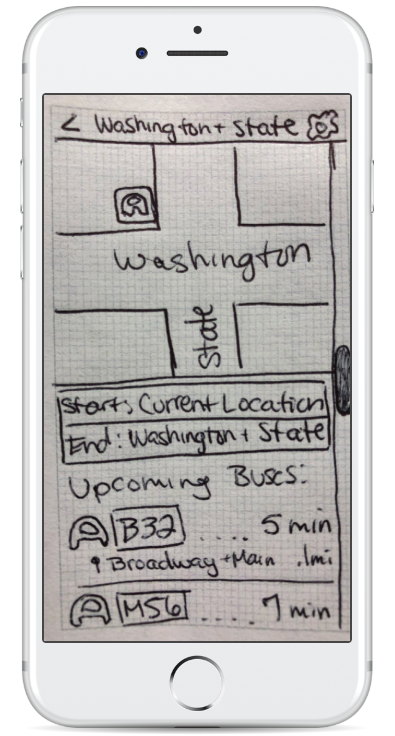 < Washington + State
Washington
State
Start: Current Location
End: Washington + State
Upcoming Buses:
B32 .... 5 min
Broadway + Main .1mi
M56 .... 7 min